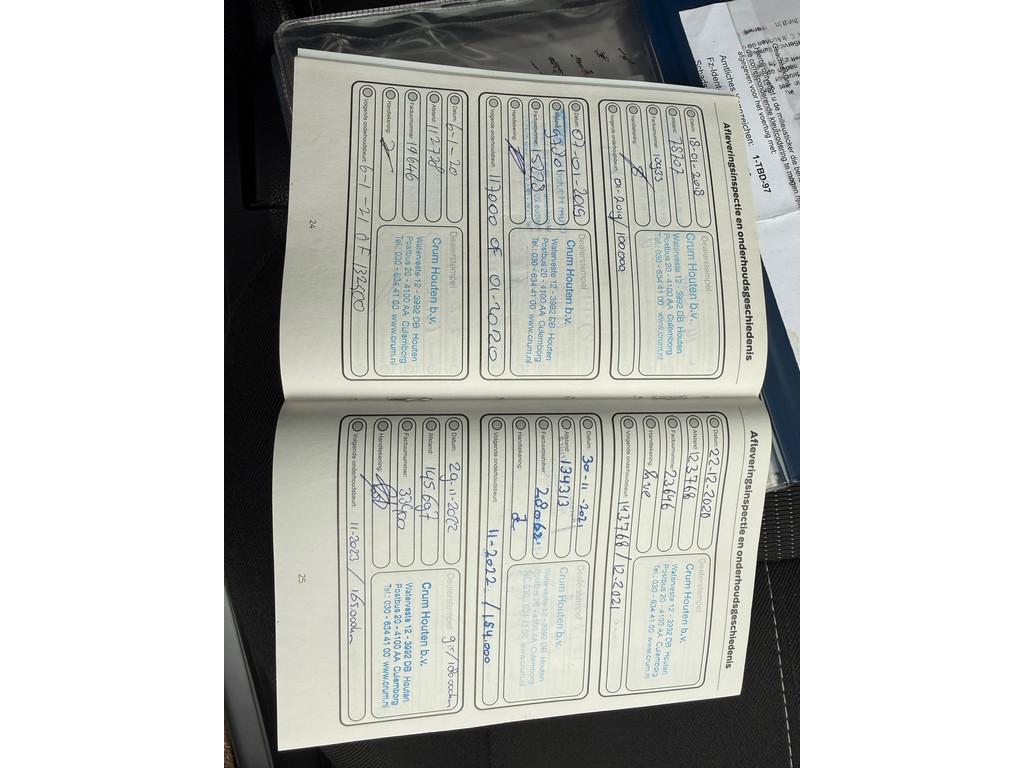 Afleveringsinspectie en onderhoudsgeschiedenis
Datum: 18-01-2018
Afstand:
Factuurnummer: 10933
Handtekening:
Volgende onderhoudsbeurt: 01-2019/100.000
Dealerstempel
Crum Houten b.v.
Waterveste 12 - 3992 DB Houten
Postbus 20 - 4100 AA Culemborg
Tel.: 030 - 634 41 00 www.crum.nl
Datum: 07-01-2019
Afstand:
Factuurnummer: 15228
Handtekening:
Volgende onderhoudsbeurt: 117000 of 01-2020
Dealerstempel
Crum Houten b.v.
Waterveste 12 - 3992 DB Houten
Postbus 20 - 4100 AA Culemborg
Tel.: 030 - 634 41 00 www.crum.nl
Datum: 6-1-20
Afstand: 112738
Factuurnummer: 19646
Handtekening:
Volgende onderhoudsbeurt: 6-1-21 OF 132500
Dealerstempel
Crum Houten b.v.
Waterveste 12 - 3992 DB Houten
Postbus 20 - 4100 AA Culemborg
Tel.: 030 - 634 41 00 www.crum.nl
24
Afleveringsinspectie en onderhoudsgeschiedenis
Datum: 22-12-2020
Afstand: 123.768
Factuurnummer: 23646
Handtekening:
Volgende onderhoudsbeurt: 143.768 / 12-2021
Dealerstempel
Crum Houten b.v.
Waterveste 12 - 3992 DB Houten
Postbus 20 - 4100 AA Culemborg
Tel.: 030 - 634 41 00 www.crum.nl
Datum: 30-11-2021
Afstand: 134313
Factuurnummer: 28062
Handtekening:
Volgende onderhoudsbeurt: 11-2022 / 154.000
Dealerstempel
Crum Houten b.v.
Waterveste 12 - 3992 DB Houten
Postbus 20 - 4100 AA Culemborg
Tel.: 030 - 634 41 00 www.crum.nl
Datum: 29-11-2022
Afstand: 145697
Factuurnummer: 32400
Handtekening:
Volgende onderhoudsbeurt: 11-2023 / 165.000km
Dealerstempel
Crum Houten b.v.
Waterveste 12 - 3992 DB Houten
Postbus 20 - 4100 AA Culemborg
Tel.: 030 - 634 41 00 www.crum.nl
25
afgegeven voor het voertuig met:
Amtliches Kennzeichen: 1-TBD-97